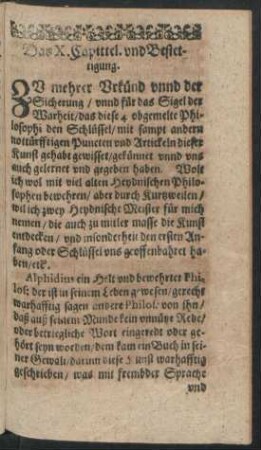 Das X. Capittel. vnd Bestet-
tigung.
ZV mehrer Vrkünd vnnd der
Sicherung / vnnd für das Sigel der
Warheit / das diese 4 obgemelte Phi-
losophi den Schlüssel / mit sampt andern
notürfftigen Puncten vnd Artickeln dieser
Kunst gehabt gewisset / gekünnet vnnd vns
auch gelernet vnd gegeben haben. Wolt
ich wol mit viel alten Heydnischen Philo-
sophen bewehren / aber durch Kurtzweilen /
wil ich zwey Heydnische Meister für mich
nemen / die auch zu mitler masse die Kunst
entdecken / vnd insonderheit den ersten An-
fang oder Schlüssel vns geoffenbahret ha-
ben / etc.
Alphidius ein Helt vnd bewehrter Phi-
los: der ist in seinem Leben gewesen / gerecht
warhafftig sagen andere Philos. von ihm /
daß auß seinem Munde kein vnnütze Rede /
oder betriegliche Wort eingeredt oder ge-
hört seyn worden / dem kam ein Buch in sei-
ner Gewalt / darinn diese Kunst warhafftig
geschrieben / was mit frembder Sprache
vnd